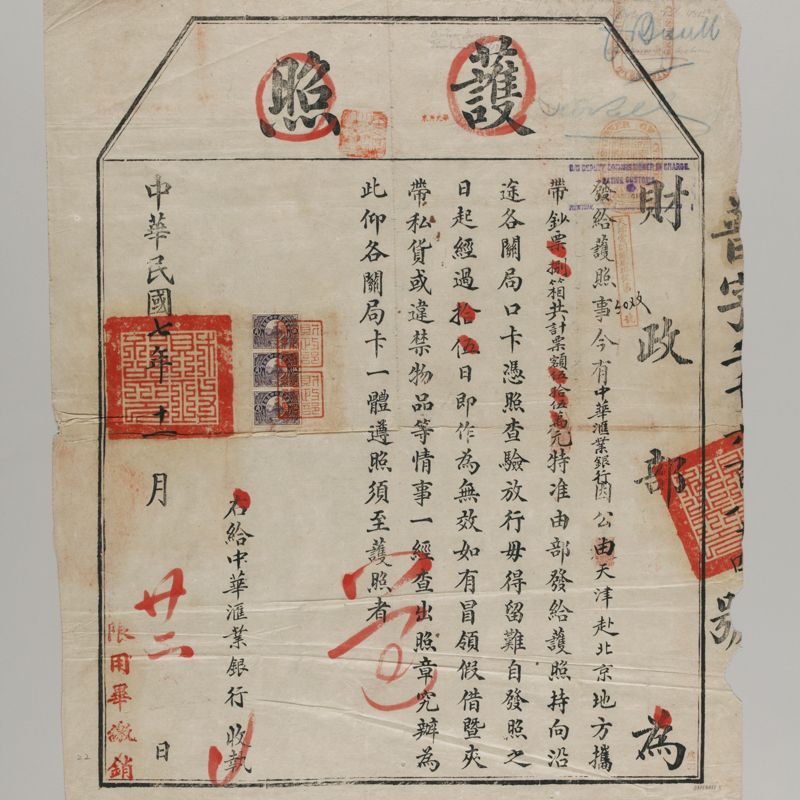 護照
財政部為
發給護照事今有中華滙業銀行因公由天津赴北京地方攜
帶鈔票捌箱共計票額伍拾伍萬元特准由部發給護照持向沿
途各關局口卡憑照查驗放行毋得留難自發照之
日起經過拾伍日即作為無效如有冒領假借暨夾
帶私貨或違禁物品等情事一經查出照章究辦為
此仰各關局卡一體遵照須至護照者
右給中華滙業銀行收執
中華民國七年十一月廿二日
限用畢繳銷
DEPUTY COMMISSIONER IN CHARGE.
NATIVE CUSTOMS
22